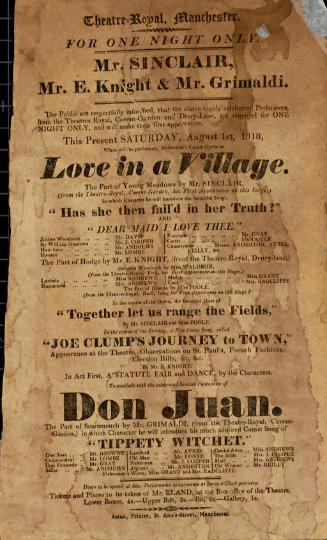 Theatre-Royal, Manchester.
FOR ONE NIGHT ONLY.
Mr. SINCLAIR,
Mr. E. Knight & Mr. Grimaldi.
The Public are respectfully informed, that the above highly celebrated Performers,
from the Theatres Royal, Covent-Garden and Drury-Lane, are engaged for ONE
NIGHT ONLY, and will make their first appearance,
This Present SATURDAY, August 1st, 1818,
When will be performed, Comic Opera
Love in a Village.
The Part of Young Meadows by Mr. SINCLAIR,
(from the Theatre-Royal, Covent Garden, his First Appearance of this Stage,)
In which Character he will introduce the favourite Song,
"Has she then fail'd in her Truth?"
AND
"DEAR MAID I LOVE THEE."
Justice Woodcock Mr. DAVIS
Mr. J. COOPER Mr. DOYLE
Hawthorn Mr. ANDREWS
Eustace Mr. LOMBE
The Part of Hodge by Mr. E. KNIGHT, (from the Theatre-Royal, Drury-lane,)
Deborah Woodcock, by Mrs. WALDRON,
Lucinda Mrs. ANDREWS Madge Miss GRANT
Housemaid Mrs. ANDREWS Cook Mr. RADCLIFFE
The Part of Rosetta by Miss POOLE,
(from the Theatre-Royal, Bath, being her First Appearance on this Stage.)
In the course of the Opera, the favourite Duet of
"Together let us range the Fields,"
By Mr. SINCLAIR and Miss POOLE.
In the course of the Evening, a New Comic Song, called
"JOE CLUMP'S JOURNEY to TOWN,"
Appearance at the Theatre, Observations on St. Paul's, French Fashions,
Election Bills, &c. &c.
By Mr. E. KNIGHT.
In Act First, A STATUTE FAIR and DANCE, by the Characters.
To conclude with the celebrated Serious Pantomime of
Don Juan.
The Part of Scaramouch by Mr. GRIMALDI, (from the Theatre-Royal, Covent-
Garden,) in which Character he will introduce his much admired Comic Song of
"TIPPETY WITCHET."
Don Juan Mr. BROWNE Landlord Mr. AYRES Donna Anna Mrs. ANDREWS
Commandant Mr. LOMBE Old Man Mr. DOYLE The Bride Mrs. J. COOPER
Don Fernando Mr. GRAY Fisherman Mr. J. COOPER Mrs. ANDREWS
Mr. ANDREWS Mr. ANDERTON Old Woman Mr. REILLY
Fishermen's Wives, Miss GRANT and Mrs. RADCLIFFE
Doors to be opened at Six, Performance to commence at Seven o'Clock precisely.
Tickets and Places to be taken of Mr. ELAND, at the Box-office of the Theatre,
Lower Boxes, 4s.—Upper Box, 3s.—Pit, 2s.—Gallery, 1s.
Aston, Printer, St. Ann's-Street, Manchester.